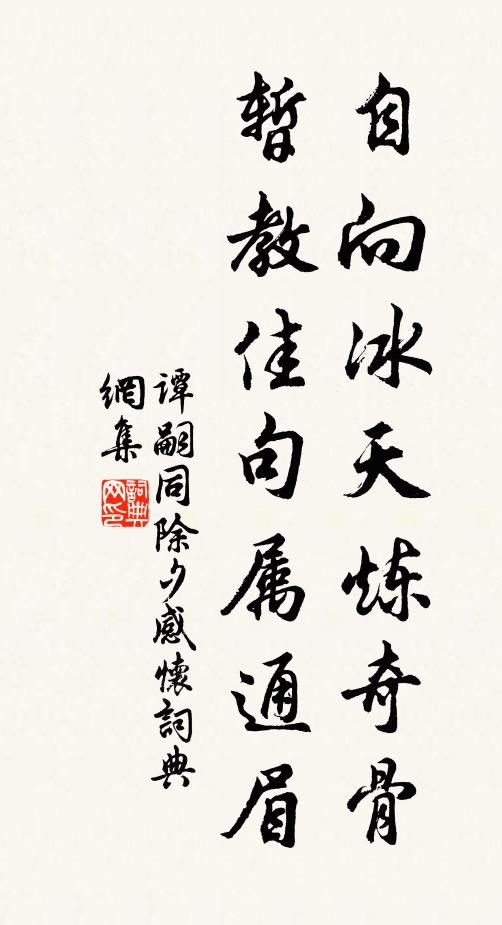 自向冰天炼奇骨
暂教佳句属通眉
谭嗣同除夕感懷詞典
網集
詞典
网印